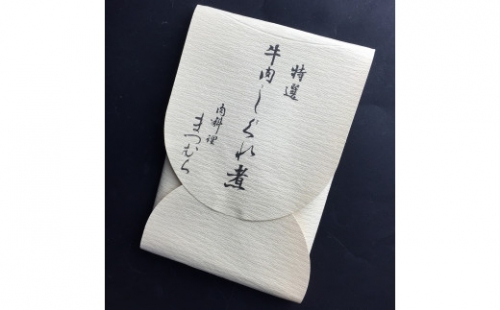 特選
牛肉しぐれ煮
肉料理
まつむら